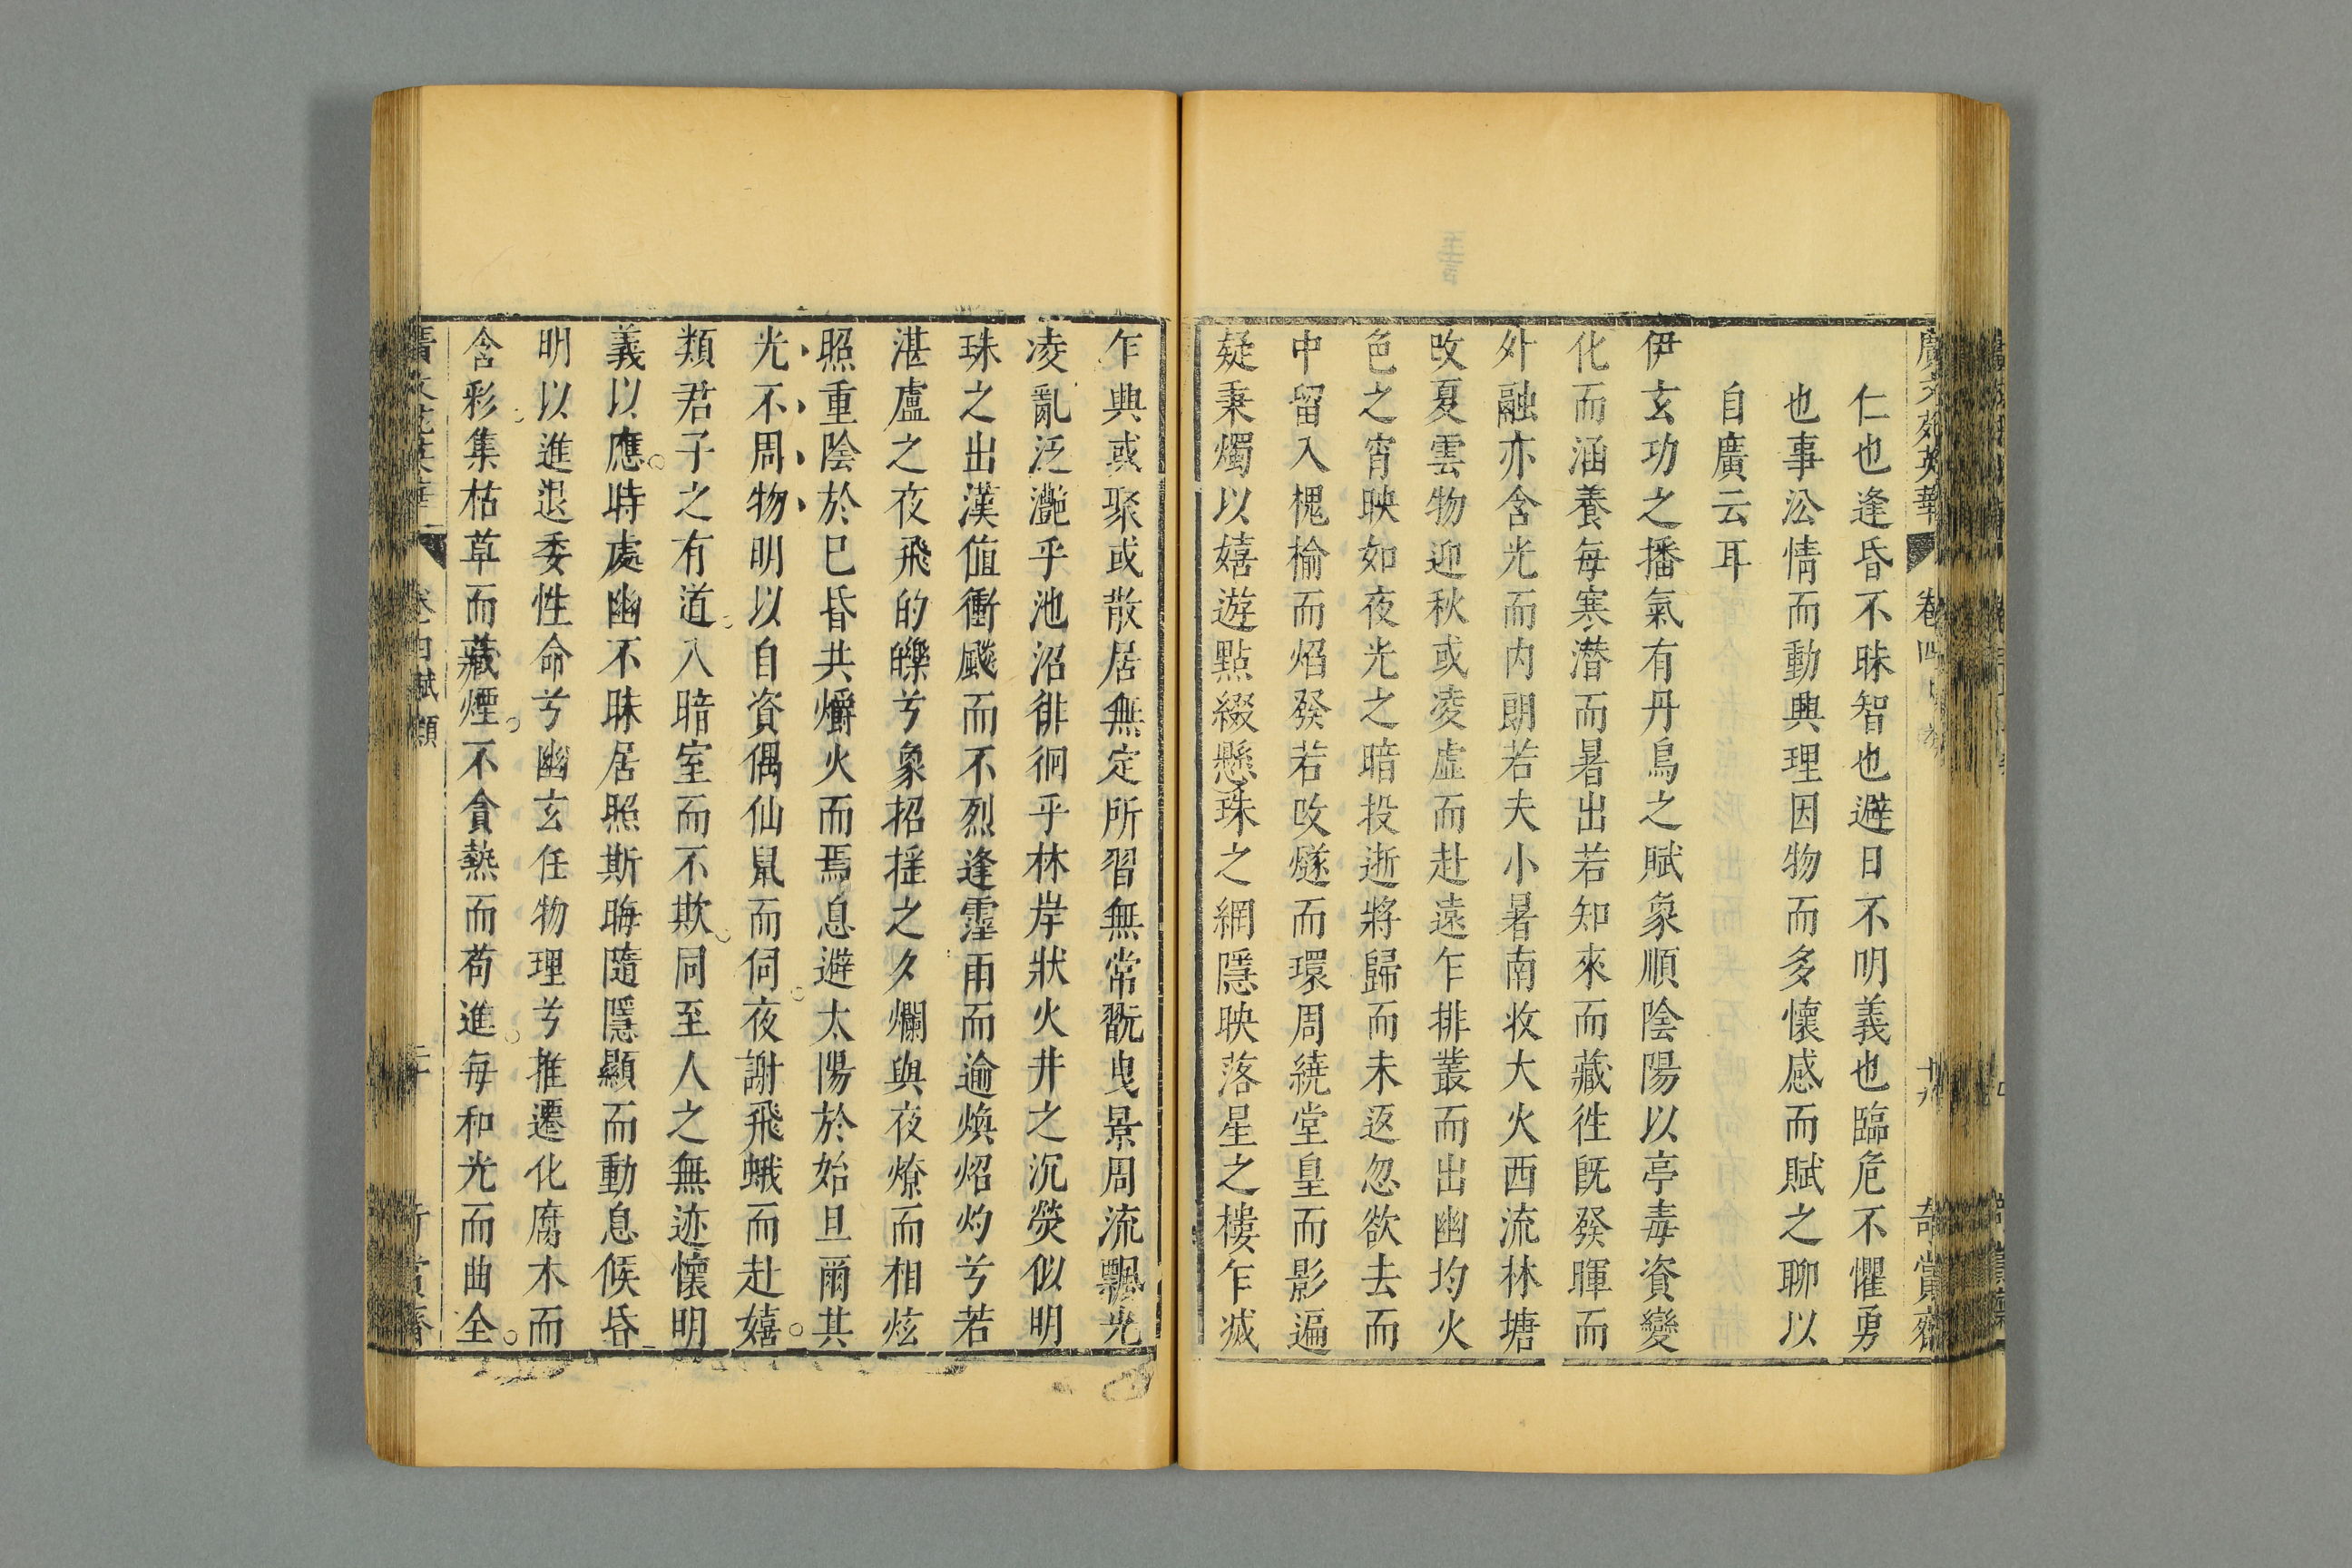 廣文苑英華 卷四 十九 奇賞齋
仁也逢昏不昧智也避日不明義也臨危不懼勇
也事沿情而動興理因物而多懷感而賦之聊以
自廣云耳
伊玄功之播氣有丹鳥之賦象順陰陽以亭毒資變
化而涵養每寒潜而暑出若知來而藏徃旣發暉而
外融亦含光而内朗若夫小暑南收大火西流林塘
改夏雲物迎秋或凌虛而赴遠乍排叢而出幽均火
色之宵映如夜光之暗投逝將歸而未返忽欲去而
中留入槐榆而焰發若改燧而環周繞堂皇而影遍
疑秉燭以嬉遊點綴懸珠之網隱映落星之樓乍滅
乍興或聚或散居無定所習無常翫曳景周流飄光
凌亂泛灔乎池沼徘徊乎林岸狀火井之沉熒似明
珠之出漢值衝飈而不烈逢霪雨而逾煥炤灼兮若
湛盧之夜飛的皪兮象招搖之夕爛與夜燎而相炫
照重陰於已昏共爝火而焉息避太陽於始旦爾其
光不周物明以自資偶仙鼠而伺夜謝飛蛾而赴嬉
類君子之有道入暗室而不欺同至人之無迹懷明
義以應時處幽不昧居照斯晦隨隱顯而動息候昏
明以進退委性命兮幽玄任物理兮推遷化腐木而
含彩集枯草而藏煙不貪熱而苟進每和光而曲全
廣文苑英華 卷四賦類 二十 奇賞齋